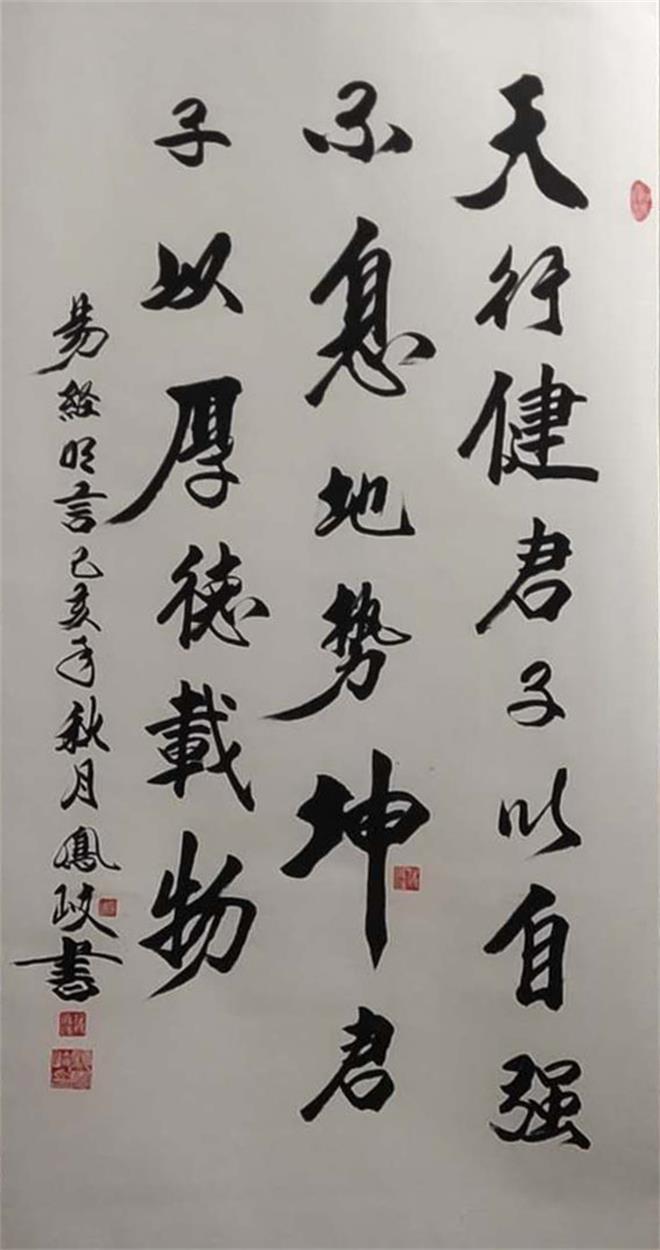 天行健君子以自强
不息地势坤君
子以厚德载物
易经名言己亥年秋月凤岐书